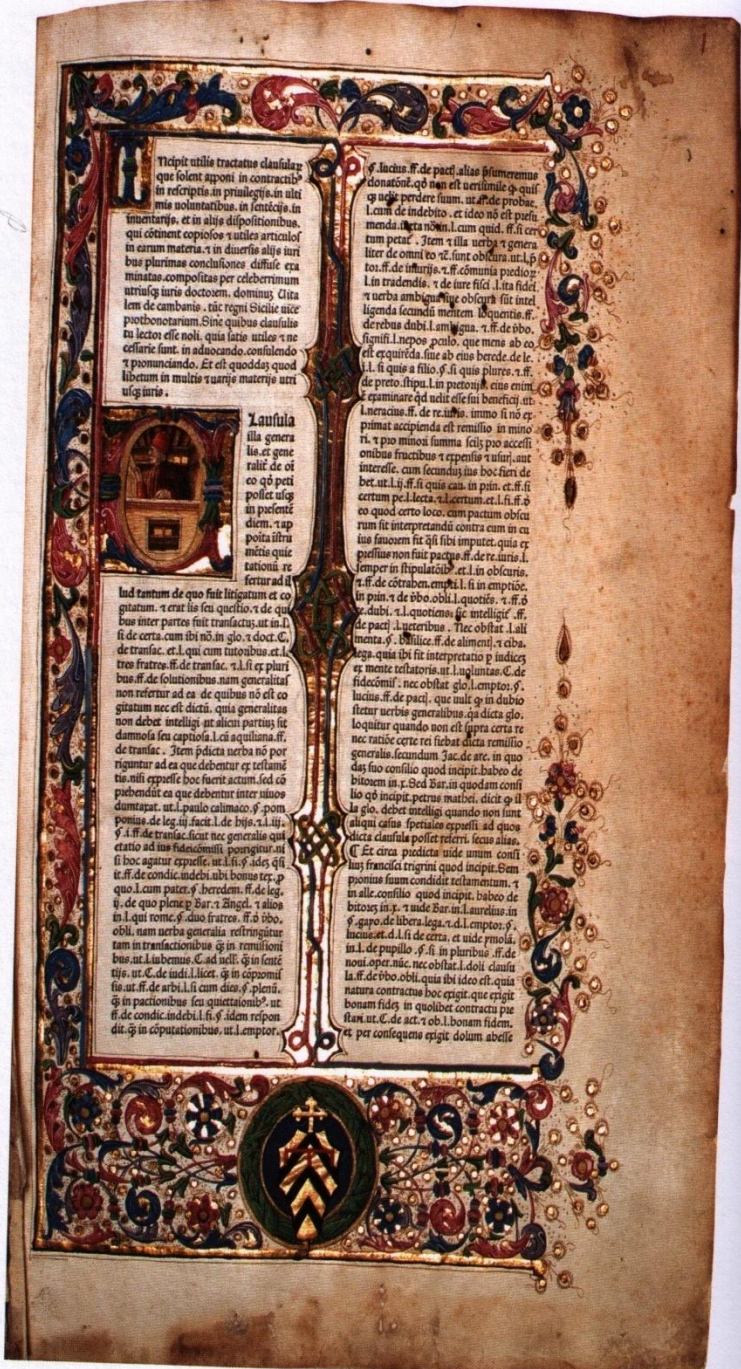 INcipit utilis tractatus clausulaꝝ
que solent apponi in contractibꝰ
in rescriptis. in priuilegijs. in ulti
mis uoluntatibus. in sentẽcijs. in
inuentarijs. et in alijs dispositionibus.
qui cõtinent copiosos ⁊ utiles articulos
in earum materia. ⁊ in diuersis alijs iuri
bus plurimas conclusiones diffuse exa
minatas. compositas per celeberrimum
utriusqꝫ iuris doctorem. dominuꝫ Uita
lem de cambanis. tũc regni Sicilie uice
prothonotarium. Sine quibus clausulis
tu lector esse noli. quia satis utiles ⁊ ne
cessarie sunt. in aduocando. consulendo
⁊ pronunciando. Et est quoddaꝫ quod
libetum in multis ⁊ uarijs materijs utri
usqꝫ iuris.
Clausula
illa genera
lis. et gene
ralit᷑ de oĩ
eo qð peti
posset usqꝫ
in presentẽ
diem. ⁊ ap
posita ĩstru
mẽtis quie
tationũ re
fertur ad il
lud tantum de quo fuit litigatum et co
gitatum. ⁊ erat lis seu questio. ⁊ de qui
bus inter partes fuit transactuꝫ. ut in. l.
si de certa. cum ibi nõ. in glo. ⁊ doct. C.
de transac. et. l. qui cum tutoribus. et. l.
tres fratres. ff. de transac. ⁊. l. si ex pluri
bus. ff. de solutionibus. nam generalitas
non refertur ad ea de quibus nõ est co
gitatum nec est dictũ. quia generalitas
non debet intelligi ut alicui partiuꝫ sit
damnosa seu captiosa. l. cũ aquiliana. ff.
de transac. Item p̃dicta uerba nõ por
riguntur ad ea que debentur ex testamẽ
tis. nisi expresse hoc fuerit actum. sed cõ
prehendũt ea que debentur inter uiuos
dumtaxat. ut. l. paulo calimaco. §. pom
ponius. de leg. iij. facit. l. de hijs. ⁊. l. iij.
§. i. ff. de transac. sicut nec generalis qui
etatio ad ius fideicõmissi porrigitur. ni
si hoc agatur expresse. ut. l. fi. §. ideꝫ q̃si
it. ff. de condic. indebi. ubi bonus tex. ꝓ
quo. l. cum pater. §. heredem. ff. de leg.
ij. de quo plene ꝑ Bar. ⁊ Angel. ⁊ alios
in. l. qui rome. §. duo fratres. ff. ð ṽbo.
obli. nam uerba generalia restringũtur
tam in transactionibus q̃ꝫ in remissioni
bus. ut. l. iubemus. C. ad uell. q̃ꝫ in sentẽ
tijs. ut. C. de iudi. l. licet. q̃ꝫ in cõpromis
sis. ut. ff. de arbi. l. si cum dies. §. plenũ.
q̃ꝫ in pactionibus seu quiettationibꝰ. ut
ff. de condic. indebi. l. fi. §. idem respon
dit. q̃ꝫ in cõputationibus. ut. l. emptor.
§. lucius. ff. de pactꝭ. alias p̃sumeremus
donatõnẽ. qð non est uerisimile ꝙ quis
qꝫ uelit perdere suum. ut. ff. de probac.
l. cum de indebito. et ideo nõ est presu
menda. iuxta nõ. in. l. cum quid. ff. si cer
tum petat᷑. Item ⁊ illa uerba ⁊ genera
liter de omni eo ⁊c̃. sunt obscura. ut. l. p̃
tor. ff. de iniurijs. ⁊. ff. cõmunia predioꝝ
l. in tradendis. ⁊ de iure fisci. l. ita fidei
⁊ uerba ambigua siue obscura sũt intel
ligenda secundũ mentem loquentis. ff.
de rebus dubi. l. ambigua. ⁊. ff. de ṽbo.
signifi. l. nepos ꝓculo. que mens ab eo
est exquirẽda. siue ab eius herede. de le.
j. l. si quis a filio. §. si quis plures. ⁊. ff.
de preto. stipu. l. in pretorijs. eius enim
ẽ examinare qð uelit esse sui beneficij. ut
l. neracius. ff. de re. iuris. immo si nõ ex
primat accipienda est remissio in mino
ri. ⁊ pro minori summa scilꝫ pro accessi
onibus fructibus ⁊ expensis ⁊ usurꝭ. aut
interesse. cum secunduꝫ ius hoc fieri de
bet. ut. l. ij. ff. si quis cau. in prin. et. ff. si
certum pe. l. lecta. ⁊. l. certum. et. l. fi. ff. ð
eo quod certo loco. cum pactum obscu
rum sit interpretandũ contra eum in cu
ius fauorem fit q̃si sibi imputet. quia ex
pressius non fuit pactus. ff. de re. iuris. l.
semper in stipulatõibꝰ. et. l. in obscuris.
⁊. ff. de cõtrahen. empti. l. si in emptiõe.
in prin. ⁊ de ṽbo. obli. l. quotiẽs. ⁊. ff. ð
re. dubi. ⁊. l. quotiens. sic intelligit᷑. ff.
de pactꝭ. l. ueteribus. Nec obstat. l. ali
menta. §. basilice. ff. de alimentꝭ. ⁊ ciba.
lega. quia ibi fit interpretatio ꝑ iudiceꝫ
ex mente testatoris. ut. l. uoluntas. C. de
fidecõmiſ. nec obstat glo. l. emptor. §.
lucius. ff. de pactꝭ. que uult ꝙ in dubio
stetur uerbis generalibus. q̃a dicta glo.
loquitur quando non est supra certa re
nec ratiõe certe rei fiebat dicta remissio
generalis. secundum Jac. de are. in quo
daꝫ suo consilio quod incipit. habeo de
bitorem in. x. Sed Bar. in quodam consi
lio qð incipit. petrus mathei. dicit ꝙ il
la glo. debet intelligi quando non sunt
aliqui casus spetiales expressi ad quos
dicta clausula posset referri. secus alias.
¶ Et circa predicta uide unum consi
liuꝫ francisci trigrini quod incipit. Sem
pronius suum condidit testamentum. ⁊
in alle. consilio quod incipit. habeo de
bitoreꝫ in. x. ⁊ uide Bar. in. l. aurelius. in
§. gayo. de libera. lega. ⁊. d. l. emptor. §.
lucius. et. d. l. si de certa. et uide ymolã.
in. l. de pupillo. §. si in pluribus. ff. de
noui. oper. nũc. nec obstat. l. doli clausu
la. ff. de ṽbo. obli. quia ibi ideo est. quia
natura contractus hoc exigit. que exigit
bonam fideꝫ in quolibet contractu pre
stari. ut. C. de act. ⁊ ob. l. bonam fidem.
et per consequens exigit dolum abesse